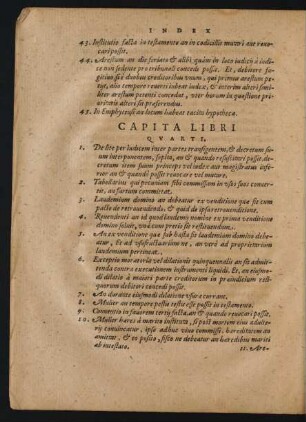 INDEX
43. Institutio facta in testamento an in codicillis mutari aut reuo-
cari possit.
44. Arestum an die feriato & alibi quàm in loco iudicij à iudice
non sedente pro tribunali concedi possit. Et, debitore fu-
gitiuo si è duobus creditoribus vnum, qui primus arestum pe-
tijt, alio tempore reuerti iubeat iudex, & interim alteri simi-
liter arestum petenti concedat, vter horum in quæstione prio-
ritatis alteri sit præferendus.
45. In Emphyteusi an locum habeat tacita hypotheca.
CAPITA LIBRI
QVARTI.
1. De lite per iudicem inter partes transigentem, & decretum suum
interponentem, sopita, an & quando resuscitari possit: decretum
item suum princeps vel iudex aut magistratus inferior
an & quando possit reuocare vel mutare.
2. Tabellarius qui pecuniam sibi commissam in vsus suos conuertit,
an furtum commiserit.
3. Laudemium domino an debeatur ex venditione quæ fit cum
pacto de retrouendendo, & quid de ipsa retrouenditione.
4. Reuendenti an id quod laudemij nomine ex prima venditione
domino soluit, vnà cum pretio sit restituendum.
5. An ex venditione quæ sub hasta fit laudemium domino debeatur,
Et ad vsufructuarium ne, an verò ad proprietarium
laudemium pertineat.
6. Exceptio moratoria vel dilationis quinquennalis an sit admittenda
contra executionem instrumenti liquidi. Et, an eiusmodi
dilatio à maiori parte creditorum in præiudicium restiquorum
debitori concedi possit.
7. An durante eiusmodi dilatione vsuræ currant.
8. Mulier an tempore pestis testis esse possit in testamento.
9. Conuentio in fauorem tertij facta, an & quando reuocari possit.
10. Mulier hæres à marito instituta, si post mortem eius adulterij
conuincatur, ipso adhuc viuo commissi, hæreditatem an
amittat, & eo posito, fisco ne debeatur an hæredibus mariti
ab intestato.
11. Are-